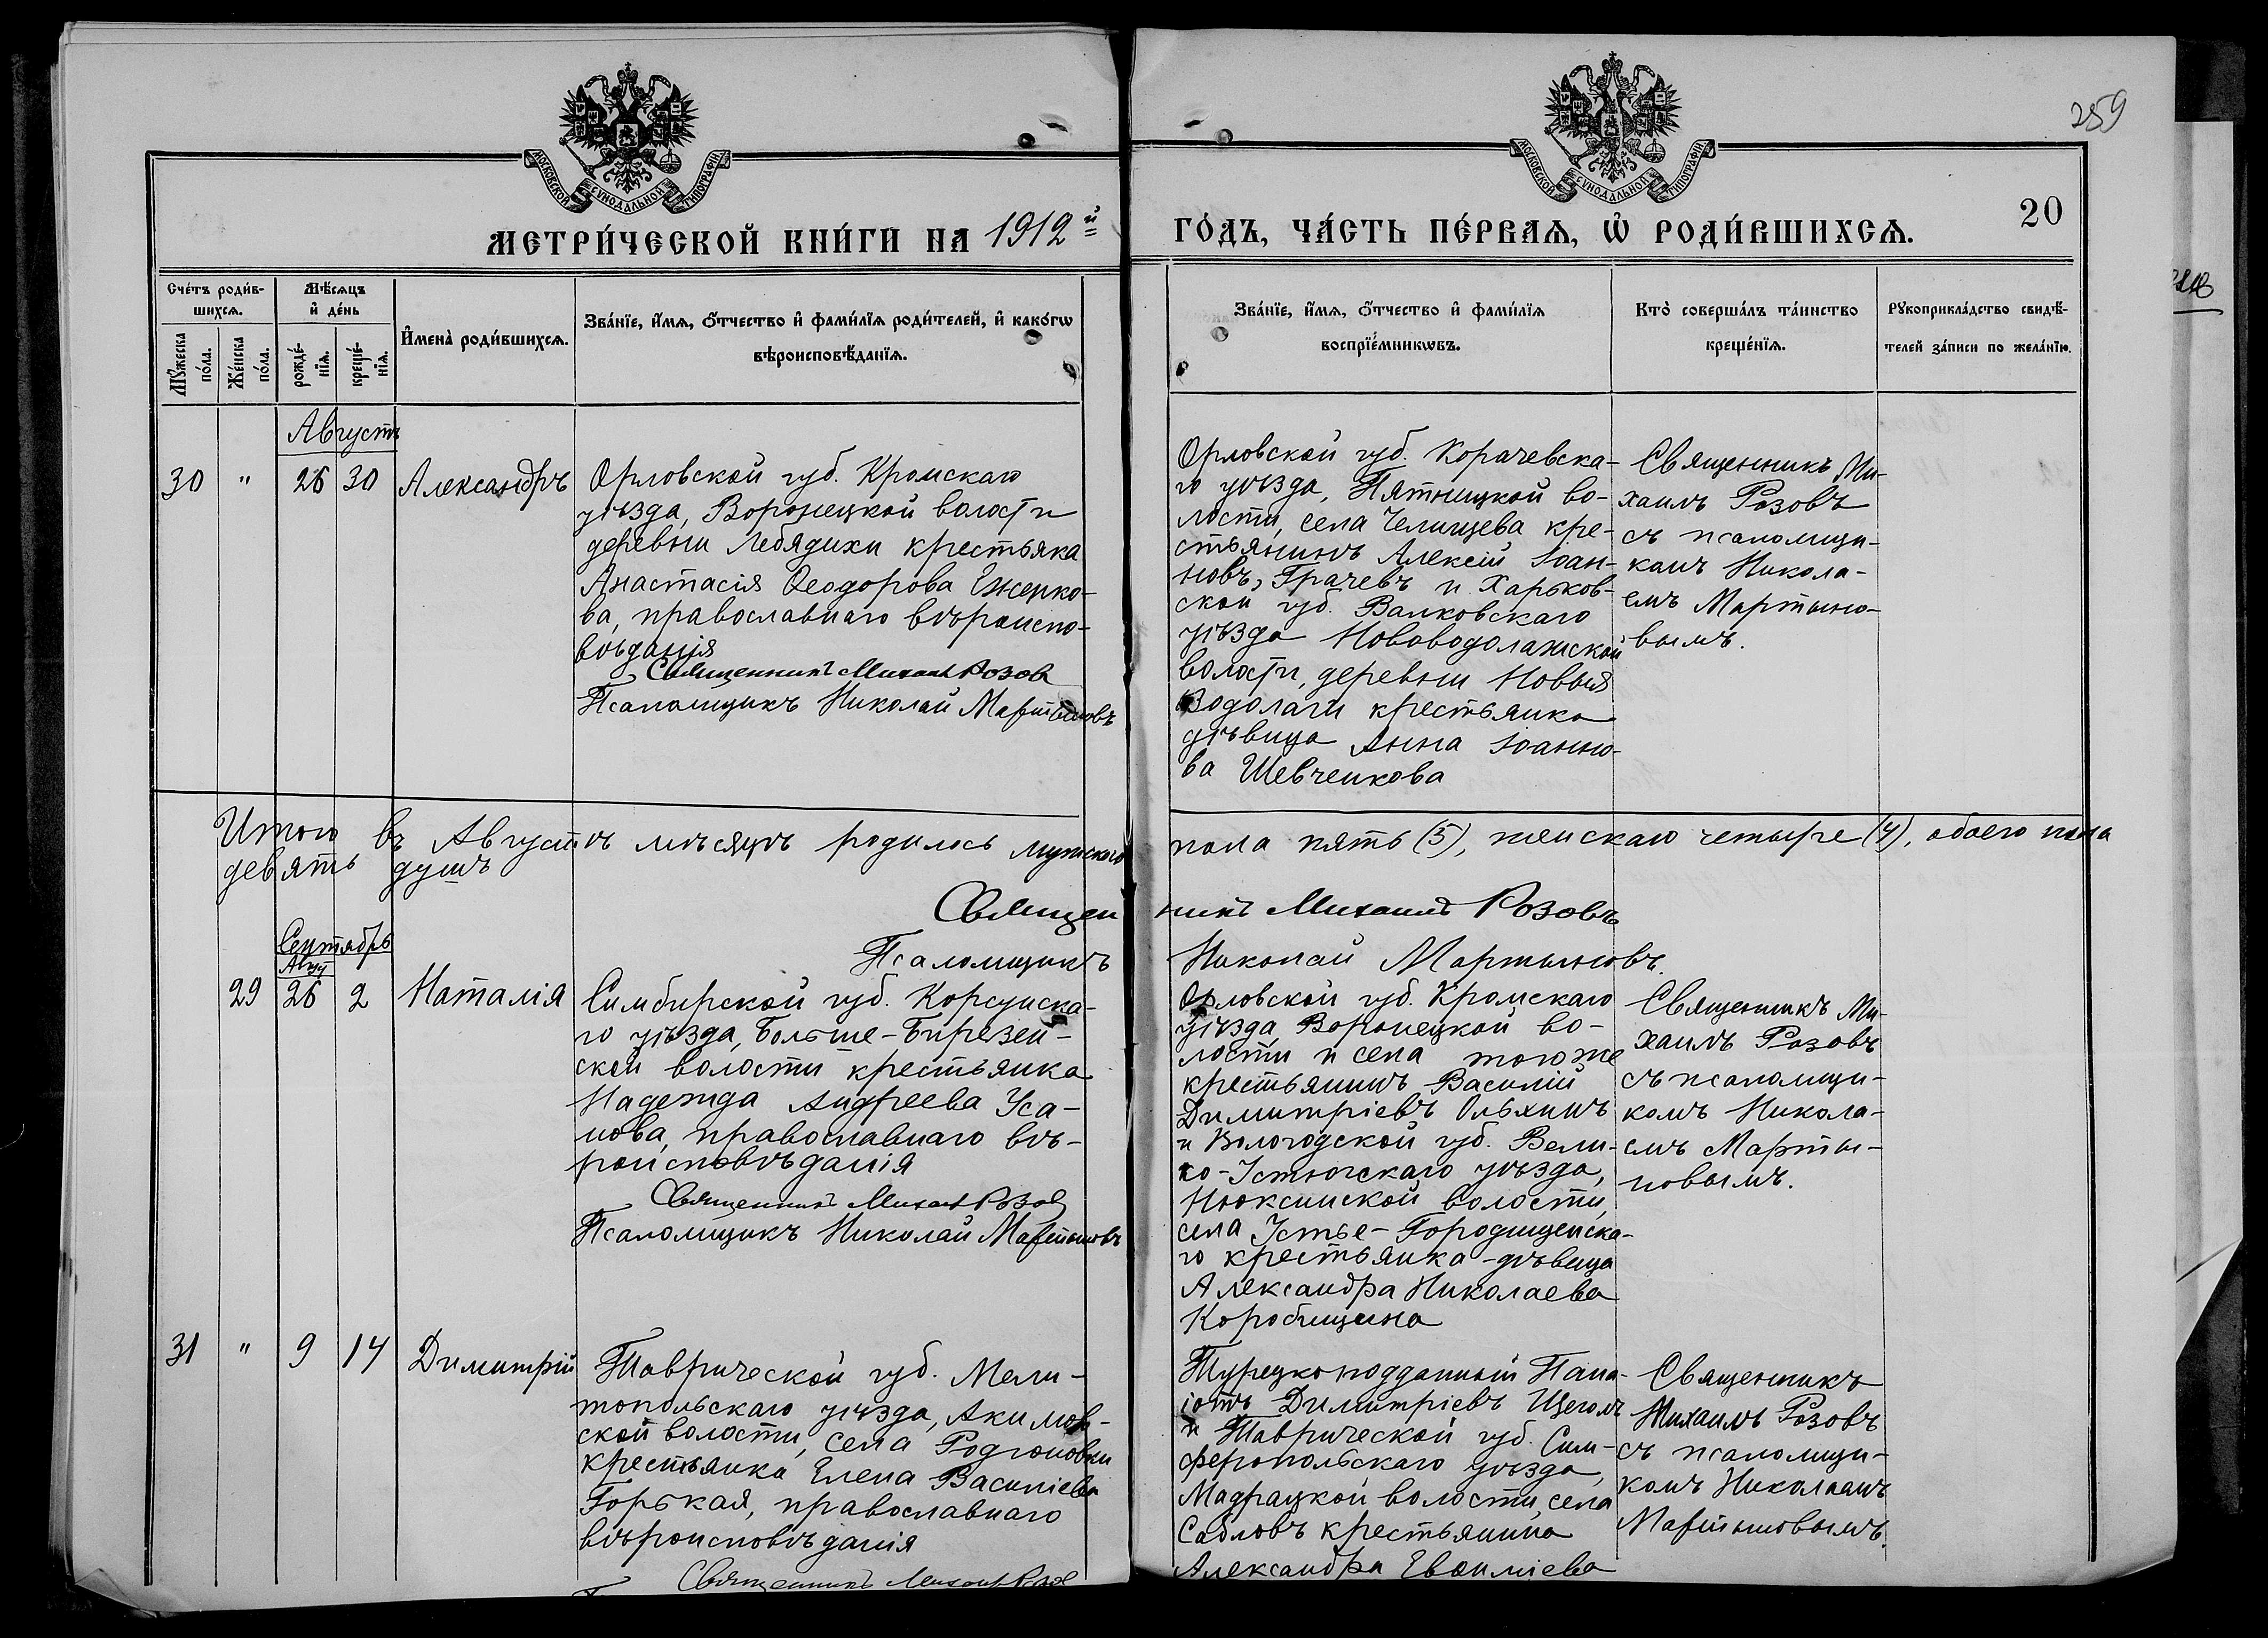 259
МОСКОВСКОЙ СѴНОДАЛЬНОЙ ТИПОГРАФІИ
МОСКОВСКОЙ СѴНОДАЛЬНОЙ ТИПОГРАФІИ
20
МЕТРИ́ЧЕСКОЙ КНИ́ГИ НА 1912й
ГО́ДЪ, ЧА́СТЬ ПЕ́РВАѦ, Ѡ҆ РОДИ́ВШИХСѦ.
Сче́тъ роди́в-
шихсѧ.
Мꙋ́жеска
по́ла.
Же́нска
по́ла.
Мѣ́сѧцъ
и҆ де́нь
рожде́-
нїѧ.
креще́-
нїѧ.
И҆мена̀ роди́вшихсѧ.
Зва́нїе, и҆́мѧ, ѻ҆́тчество и҆ фами́лїѧ роди́телей, и҆ како́гѡ
вѣроисповѣ́данїѧ.
Зва́нїе, и҆́мѧ, ѻ҆́тчество и҆ фами́лїѧ
воспрїе́мникѡвъ.
Кто̀ соверша́лъ та́инство
креще́нїѧ.
Рꙋкоприкла́дство свидѣ́-
телей за́писи по жела́нїю.
Августъ
30 " 26 30 Александръ
Орловской губ. Кромскаго
уѣзда, Воронецкой волости
деревни Лебядихи крестьянка
Анастасія Ѳеодорова
ва, православнаго вѣроиспо-
вѣданія
Священникъ Михаил Розов
Псаломщикъ Николай Мартыновъ
Орловской губ. Корачевска-
го уѣзда, Пятницкой во-
лости, села Челищева кре-
стьянинъ Алексій Іоан-
новъ, Грачевъ и Харьков-
ской губ. Валковскаго
уѣзда Нововодолажской
волости, деревни Новыя
Водолаги крестьянка
дѣвица Анна Іоанно-
ва Шевченкова
Священникъ Ми-
хаилъ Розовъ
съ псаломщи-
комъ Никола-
емъ Мартыно-
вымъ.
Итого въ Августѣ мѣсяцѣ родилось мужскаго пола пять (5), женскаго четыре (4), обоего пола
девять душъ
Священникъ Михаилъ Розовъ
Псаломщикъ Николай Мартыновъ.
Сентябрь
Авгу
29 26 2 Наталія
Симбирской губ. Корсунска-
го уѣзда, Больше-Березен-
ской волости крестьянка
Надежда Андреева Уса-
нова, православнаго вѣ-
роисповѣданія
Священникъ Михаил Розов
Псаломщикъ Николай Мартыновъ
Орловской губ. Кромскаго
уѣзда Воронецкой во-
лости и села тогоже
крестьянинъ Василій
Димитріевъ Ольхинъ
и Вологодской губ. Вели-
ко-Устюгскаго уѣзда,
Нюксинской волости,
села Устье-Городищенска-
го крестьянка-дѣвица
Александра Николаева
Коробицына
Священникъ Ми-
хаилъ Розовъ
съ псаломщи-
комъ Никола-
емъ Марты-
новымъ.
31 " 9 14 Димитрій
Таврической губ. Мели-
топольскаго уѣзда, Акимов-
ской волости, села Родіоновки
крестьянка Елена Василіева
Горькая, православнаго
вѣроисповѣданія
Священникъ Михаил Розов
Турецкоподданный Пана-
іотъ Димитріевъ Щеголъ
и Таврической губ. Сим-
феропольскаго уѣзда,
волости, села
Сабловъ крестьянина
Александра Евѳиміева
Священникъ
Михаилъ Розовъ
съ псаломщи-
комъ Николаемъ
Мартыновымъ.